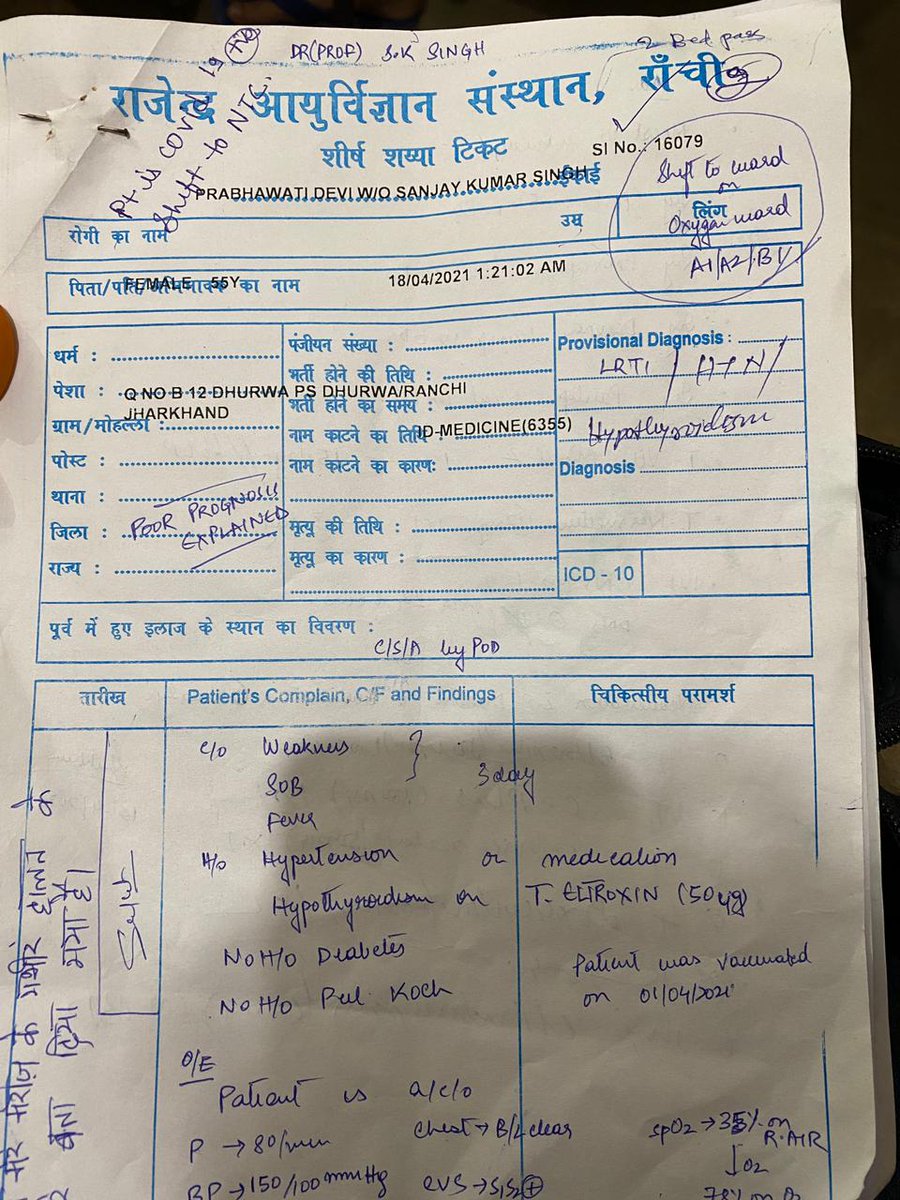 DR(PROF) S.K SINGH
2 Bed pass
Pt is COVID 19 +ve
Shift to NTC.
राजेन्द्र आयुर्विज्ञान संस्थान, राँची
शीर्ष शय्या टिकट
SI No.: 16079
PRABHAWATI DEVI W/O SANJAY KUMAR SINGH
इकाई
Shift to ward
on
Oxygen ward
A1/A2/B1/
रोगी का नाम
उम्र
लिंग
पिता/पति/अभिभावक का नाम
FEMALE 55Y
18/04/2021 1:21:02 AM
धर्म :
पेशा :
Q NO B 12 DHURWA PS DHURWA/RANCHI
JHARKHAND
ग्राम/मोहल्ला :
पोस्ट :
थाना :
जिला :
राज्य :
POOR PROGNOSIS
EXPLAINED
पंजीयन संख्या :
भर्ती होने की तिथि :
भर्ती होने का समय :
नाम काटने का तिथि
ID-MEDICINE(6355)
नाम काटने का कारण:
मृत्यु की तिथि :
मृत्यु का कारण :
Provisional Diagnosis :
LRTI / HTN /
Hypothyroidism
Diagnosis
ICD - 10
पूर्व में हुए इलाज के स्थान का विवरण :
C/S/A by POD
तारीख
Patient's Complain, C/F and Findings
चिकित्सीय परामर्श
c/o Weakness
SOB
Fever
3 day
H/o Hypertension on medication
Hypothyroidism on T. ELTROXIN (50 µg)
No H/o Diabetes
No H/o Pul. Koch
Patient was vaccinated
on 01/04/2021
O/E
Patient is a/c/o
P → 80/min
Chest → B/L clear
SpO2 → 35% on
R.AIR
O2
BP → 150/100 mmHg
CVS → S1S2 +
78% on
मेरे मरीज़ के गंभीर हालत के
बता दिया गया है।